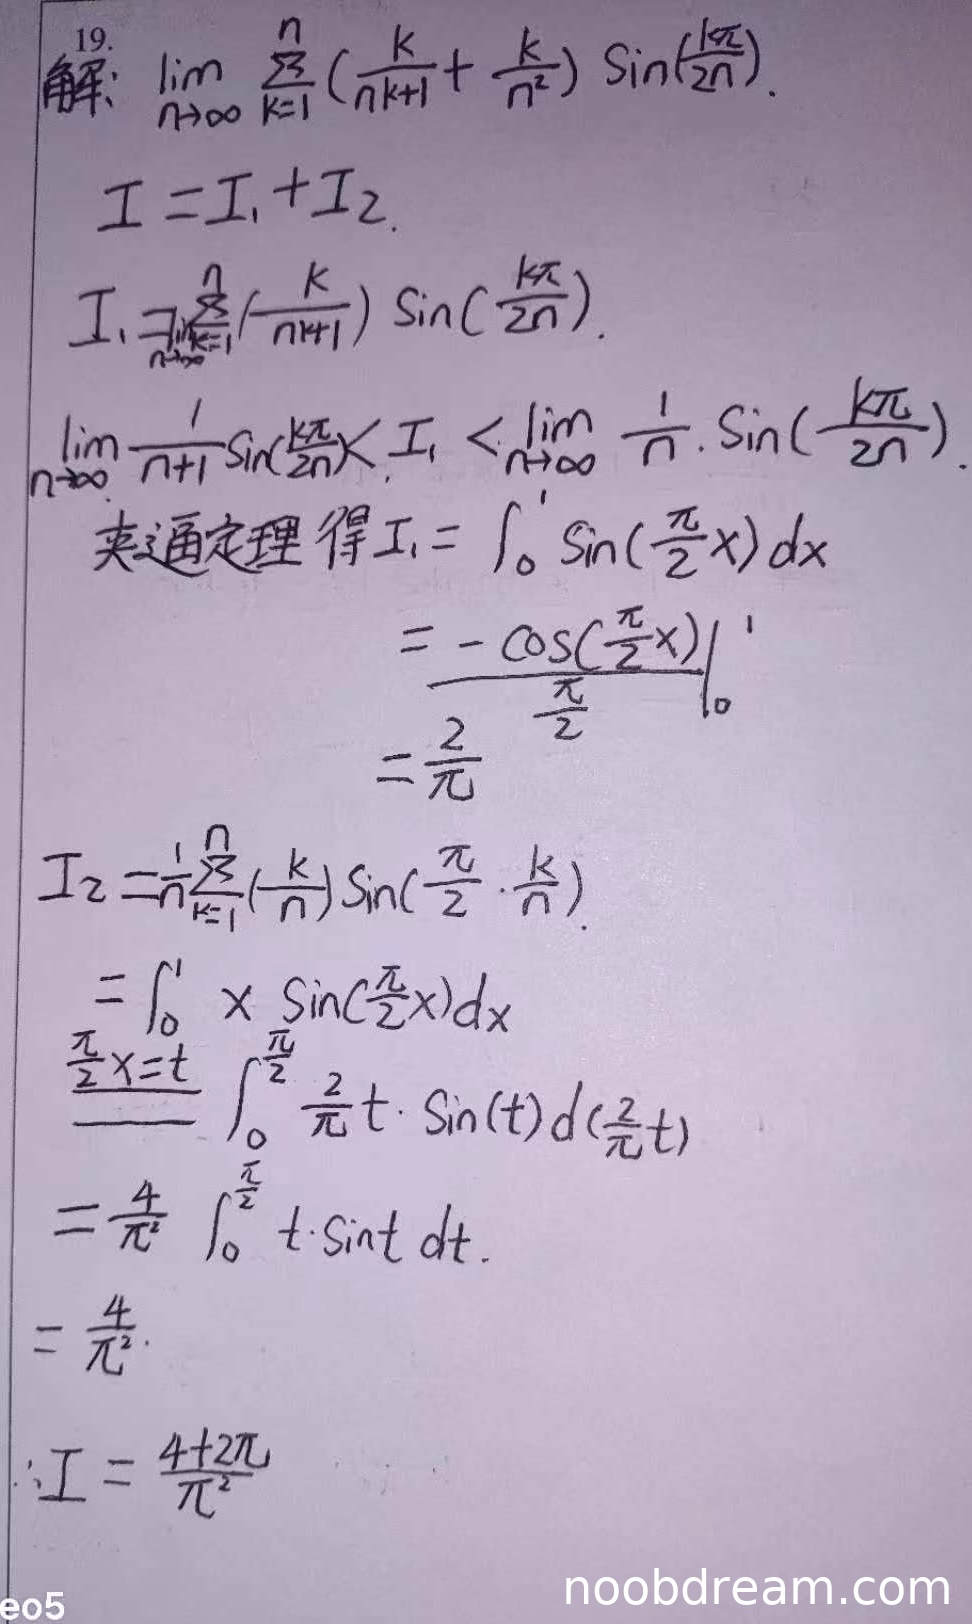 19.
解: lim n→∞ Σ k=1 n (k/(nk+1) + k/n²) Sin(kπ/2n).
I = I₁ + I₂.
I₁ = lim n→∞ Σ k=1 n (k/(nk+1)) Sin(kπ/2n).
lim n→∞ 1/(n+1) Sin(kπ/2n) < I₁ < lim n→∞ 1/n · Sin(kπ/2n).
夹逼定理得 I₁ = ∫₀¹ Sin(π/2 x) dx
= -cos(π/2 x) / (π/2) |₀¹
= 2/π
I₂ = 1/n Σ k=1 n (k/n) Sin(π/2 · k/n).
= ∫₀¹ x Sin(π/2 x) dx
π/2 x = t ∫₀^(π/2) 2/π t · Sin(t) d(2/π t)
= 4/π² ∫₀^(π/2) t · Sint dt.
= 4/π².
∴ I = (4+2π)/π²
eo5
noobdream.com